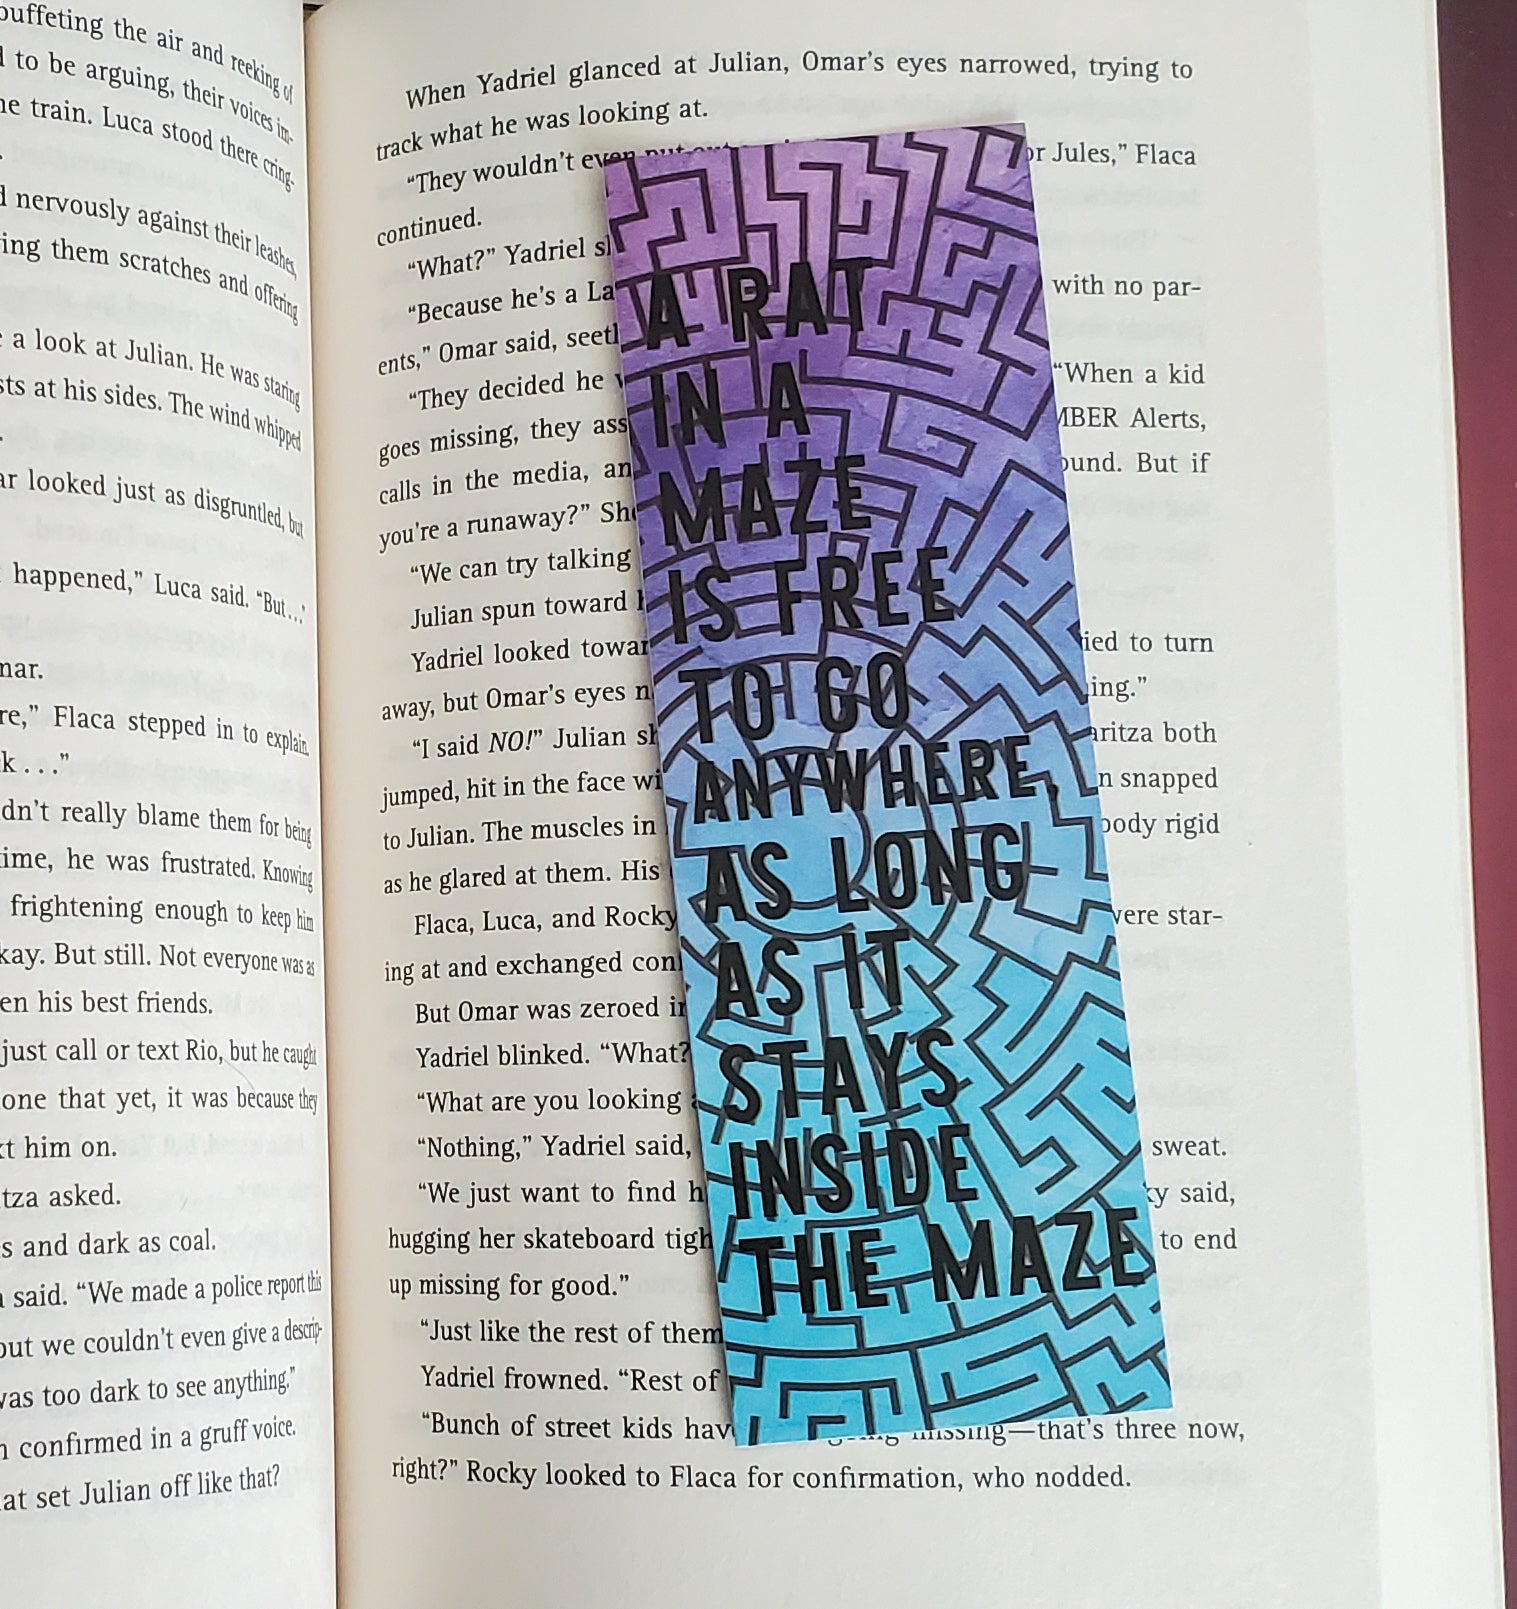 buffeting the air and reeking of
to be arguing, their voices im-
train. Luca stood there cring-
nervously against their leashes,
ing them scratches and offering
a look at Julian. He was staring
at his sides. The wind whipped
looked just as disgruntled, but
happened,” Luca said. “But . . .”
mar.
re,” Flaca stepped in to explain.
k . . .”
dn’t really blame them for being
ime, he was frustrated. Knowing
frightening enough to keep him
kay. But still. Not everyone was as
en his best friends.
just call or text Rio, but he caught
one that yet, it was because they
him on.
tza asked.
s and dark as coal.
said. “We made a police report this
but we couldn’t even give a descrip-
was too dark to see anything.”
confirmed in a gruff voice.
at set Julian off like that?
When Yadriel glanced at Julian, Omar’s eyes narrowed, trying to
track what he was looking at.
“They wouldn’t even put out or Jules,” Flaca
continued.
“What?” Yadriel
“Because he’s a La with no par-
ents,” Omar said,
“They decided he “When a kid
goes missing, they ass MBER Alerts,
calls in the media, an ound. But if
you’re a runaway?” She
“We can try talking
Julian spun toward
Yadriel looked towar ied to turn
away, but Omar’s eyes n ing.”
“I said NO!” Julian sh aritza both
jumped, hit in the face wi n snapped
to Julian. The muscles in body rigid
as he glared at them. His
Flaca, Luca, and Rocky were star-
ing at and exchanged con
But Omar was zeroed in
Yadriel blinked. “What?
“What are you looking
“Nothing,” Yadriel said, sweat.
“We just want to find h ky said,
hugging her skateboard tigh to end
up missing for good.”
“Just like the rest of them
Yadriel frowned. “Rest of
“Bunch of street kids hav missing—that’s three now,
right?” Rocky looked to Flaca for confirmation, who nodded.
A RAT
IN A
MAZE
IS FREE
TO GO
ANYWHERE,
AS LONG
AS IT
STAYS
INSIDE
THE MAZE